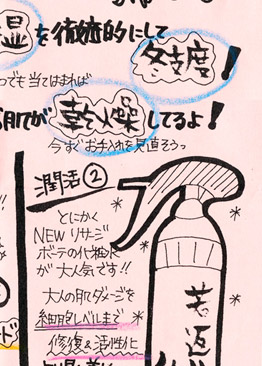 湿を徹底的にして
冬支度!
つでも当てはまれば
肌が乾燥してるよ!
今すぐお手入れを見直そうっ
潤活②
とにかく
NEW リサージ
ボーテの化粧水
が大人気です!!
大人の肌ダメージを
細胞レベルまで
修復&活性化
若返